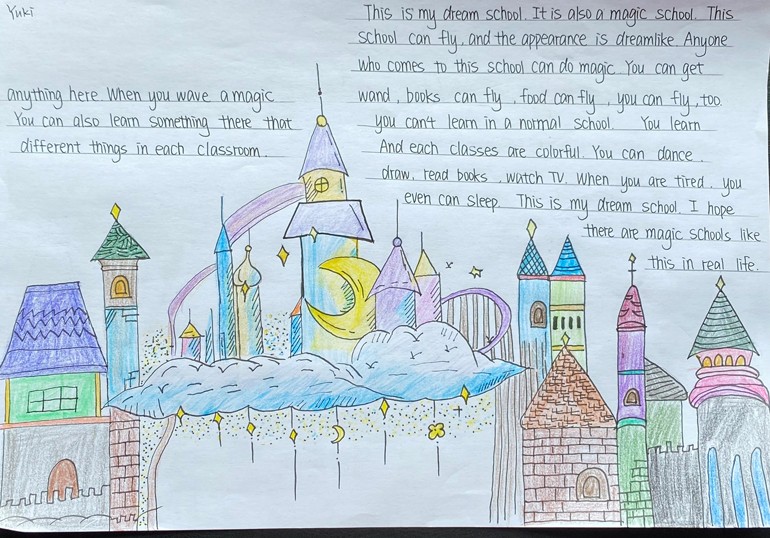 Yuki
This is my dream school. It is also a magic school. This
school can fly, and the appearance is dreamlike. Anyone
who comes to this school can do magic. You can get
anything here. When you wave a magic
wand, books can fly, food can fly, you can fly, too.
You can also learn something there that
you can't learn in a normal school. You learn
different things in each classroom.
And each classes are colorful. You can dance,
draw, read books, watch TV. When you are tired, you
even can sleep. This is my dream school. I hope
there are magic schools like
this in real life.